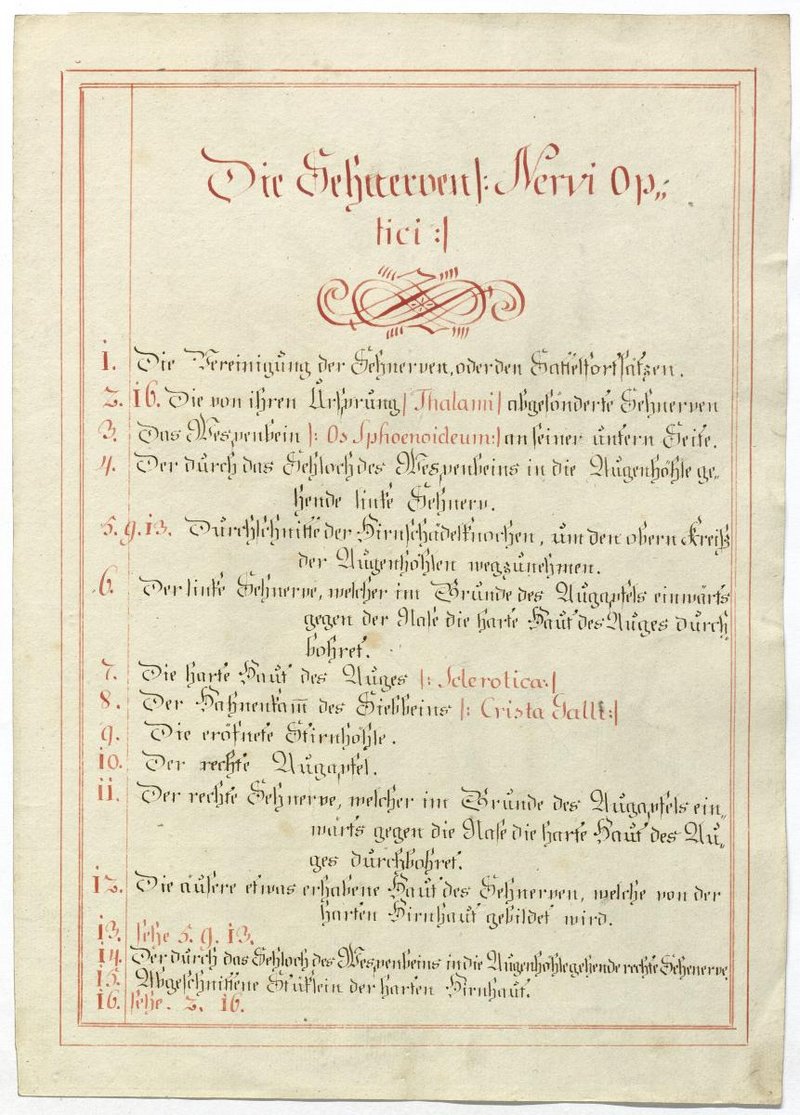 Die Sehnerven |: Nervi Op„
tici :|
1. Die Vereinigung der Sehnerven, oder den Sattelfortsätzen.
2. 16. Die von ihren Ursprung | Thalami | abgesönderte Sehnerven
3. Das Wespenbein |: Os Sphoenoideum :| an seiner untern Seite.
4. Der durch das Sehloch des Wespenbeins in die Augenhöhle ge„
hende linke Sehnerv.
5. 9. 13. Durchschnitte der Hirnschädelknochen, um den obern Kreiß
der Augenhöhlen wegzunehmen.
6. Der linke Sehnerve, welcher im Grunde des Augapfels einwärts
gegen der Nase die harte Haut des Auges durch
bohret.
7. Die harte Haut des Auges |: Sclerotica :|
8. Der Hahnenkam̅ des Siebbeins |: Crista Galli :|
9. Die eröfnete Stirnhöhle.
10. Der rechte Augapfel.
11. Der rechte Sehnerve, welcher im Grunde des Augapfels ein„
wärts gegen die Nase die harte Haut des Au„
ges durchbohret.
12. Die äusere etwas erhabene Haut des Sehnerven, welche von der
harten Hirnhaut gebildet wird.
13. sehe 5. 9. 13.
14. Der durch das Sehloch des Wespenbeins in die Augenhöhle gehende rechte Sehenerve
15. Abgeschnittene Stüklein der harten Hirnhaut.
16. sehe. 2. 16.